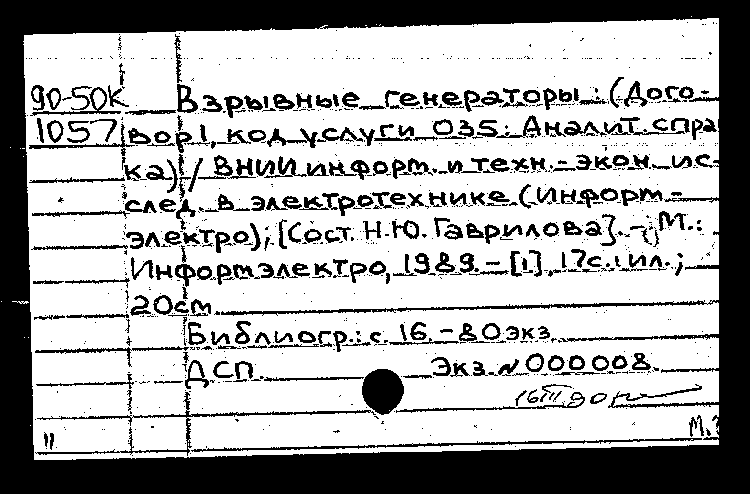 90-50К Взрывные генераторы: (Дого-
1057 вор 1, код услуги 035: Аналит. спра
ка) / ВНИИ информ. и техн.-экон. ис-
след. в электротехнике (Информ-
электро); [Сост. Н.Ю. Гаврилова]. - М.:
Информэлектро, 1989. - [1], 17с.: ил.;
20см
Библиогр.: с. 16. - 80экз
ДСП. Экз. N 000008.
16III90
"